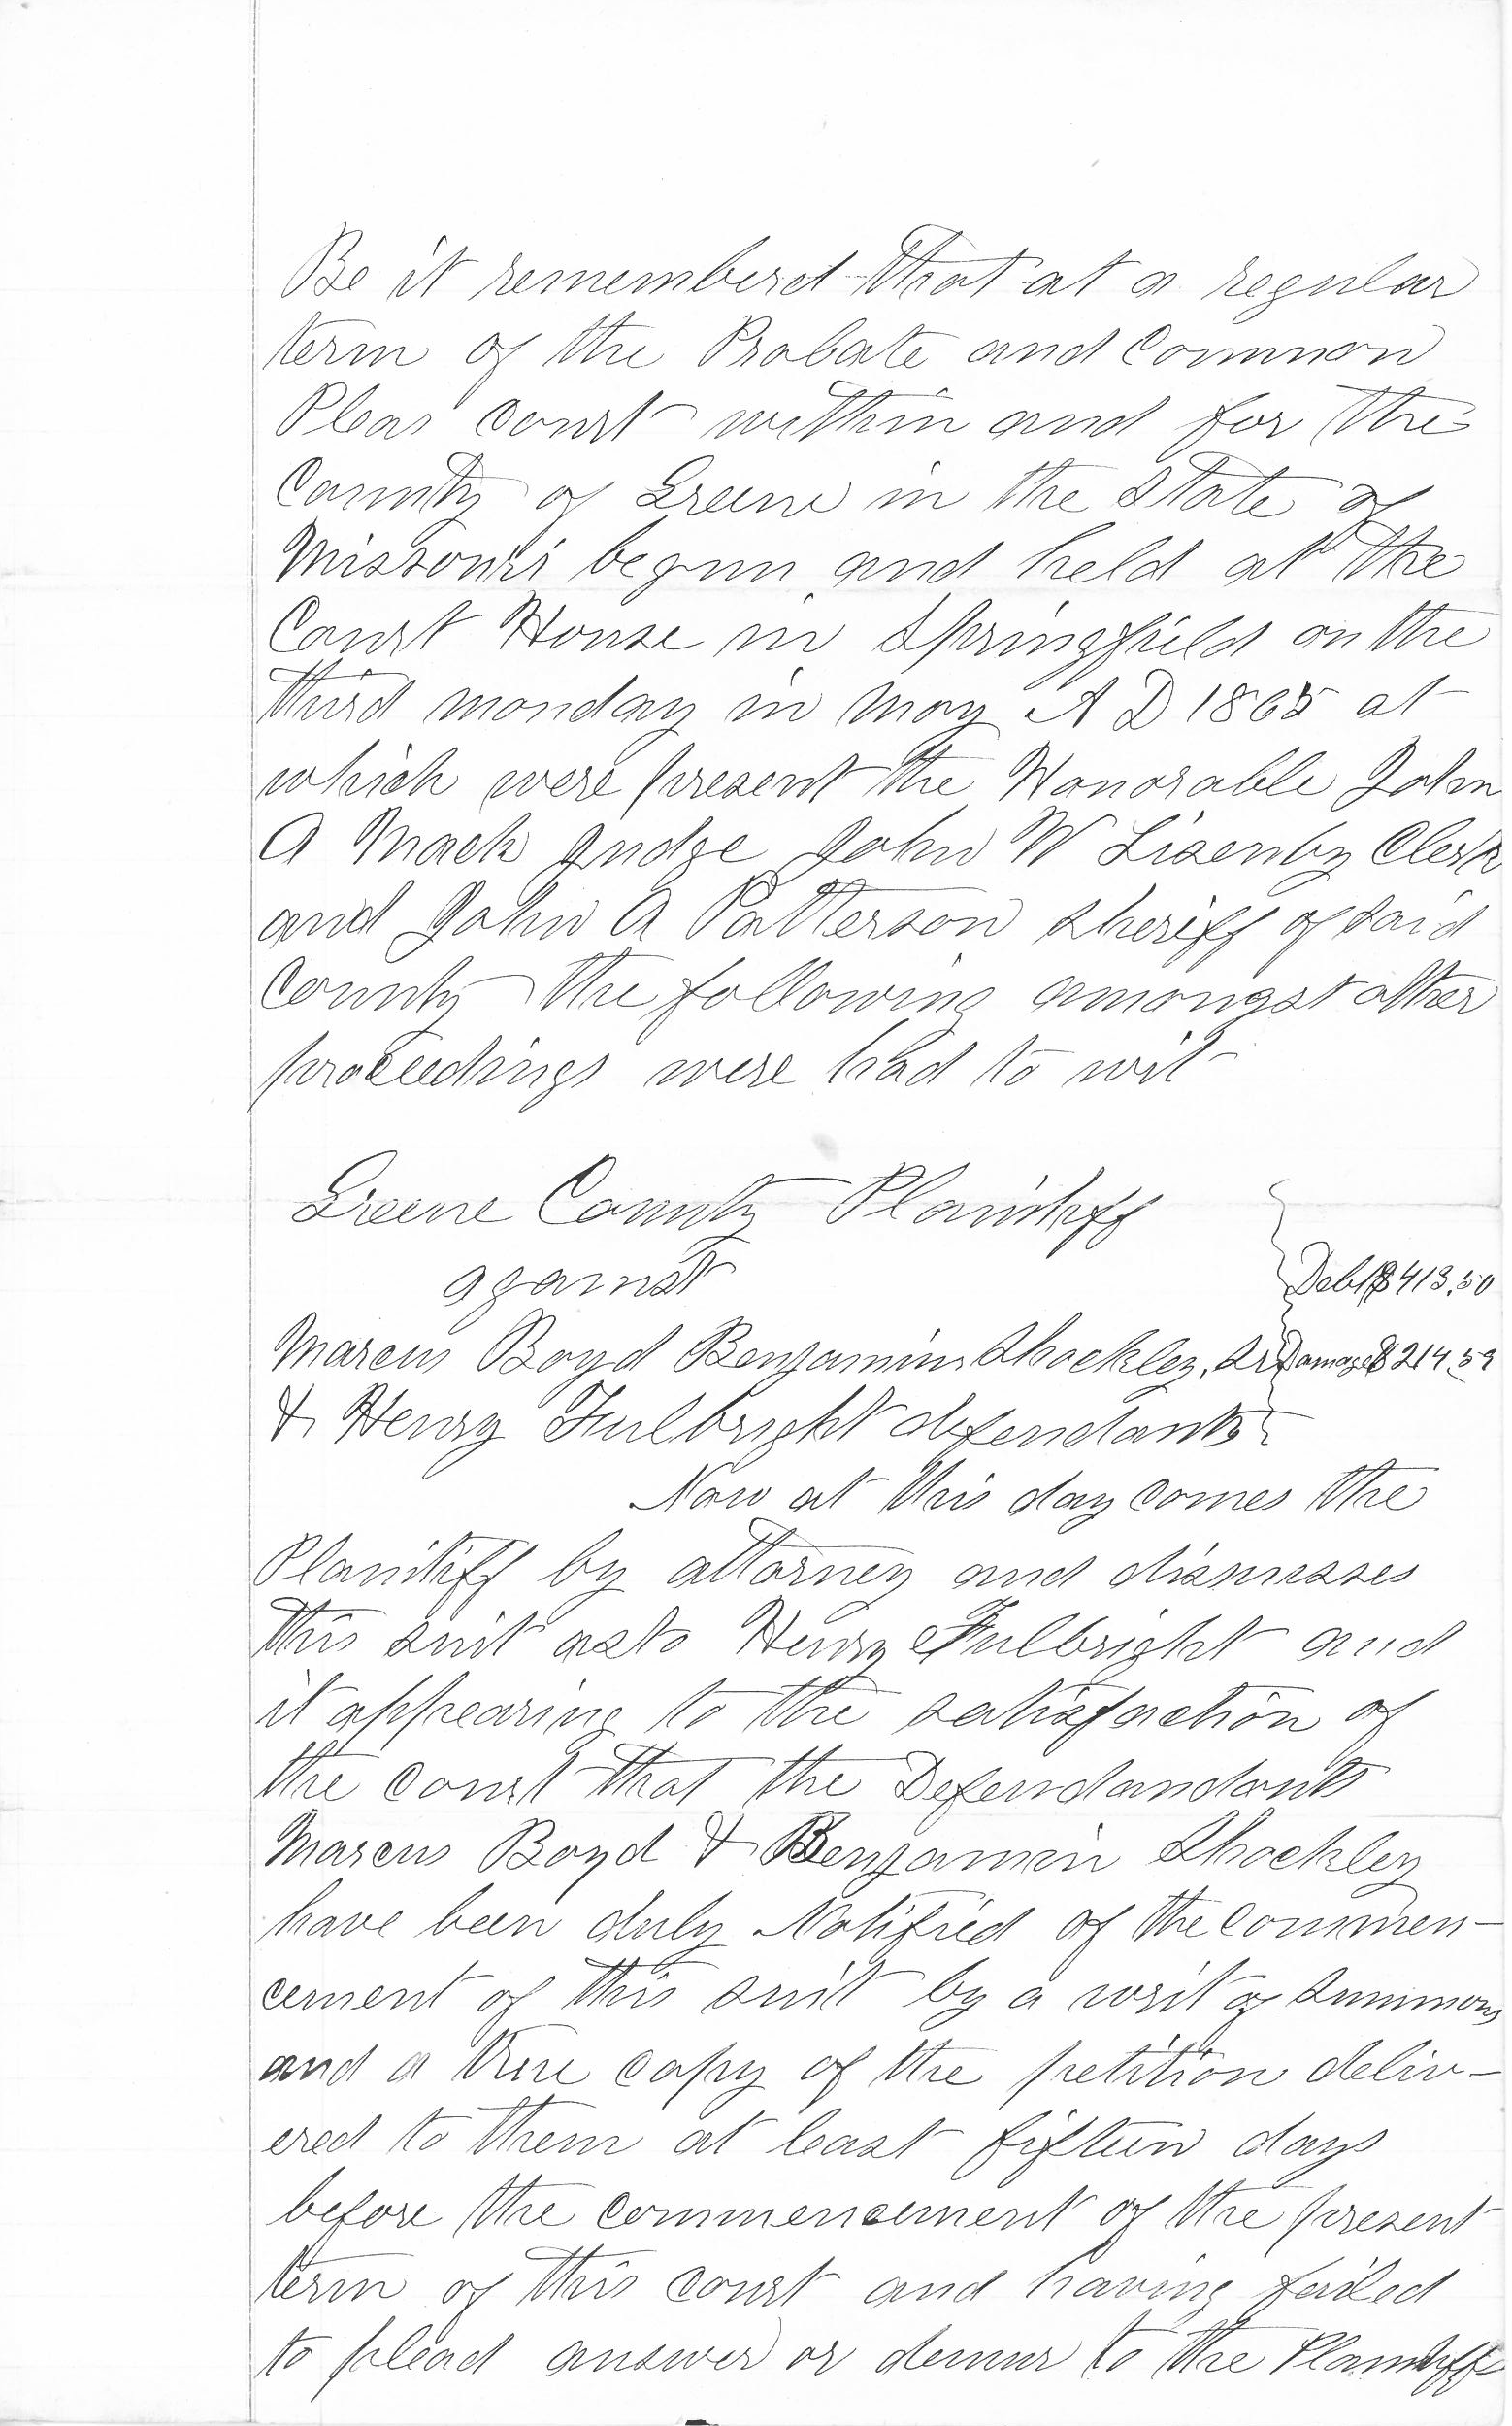 Be it rememberd that at a regular
term of the Probate and Common
Pleas Court within and for the
County of Greene in the State of
Missouri begun and held at the
Court House in Springfield on the
third monday in may A D 1865 at
which were present the Honorable John
A Mack Judge John W Lisenby Clerk
and John A Patterson Sheriff of said
County the following amongst other
proceedings were had to wit
Greene County Plaintiff
against
Debt $413.50
Marcus Boyd Benjamin Shockley, Sr Damages $214.59
& Henry Fulbright defendants
Now at this day comes the
Plaintiff by attorney and dismisses
this suit as to Henry Fulbright and
it appearing to the satisfaction of
the court that the Defendandants
Marcus Boyd & Benjamin Shockley
have been duly Notified of the commen-
cement of this suit by a writ of Summons
and a true copy of the petition deliv-
ered to them at least fifteen days
before the commencement of the present
term of this court and having failed
to plead answer or demur to the Plaintiff